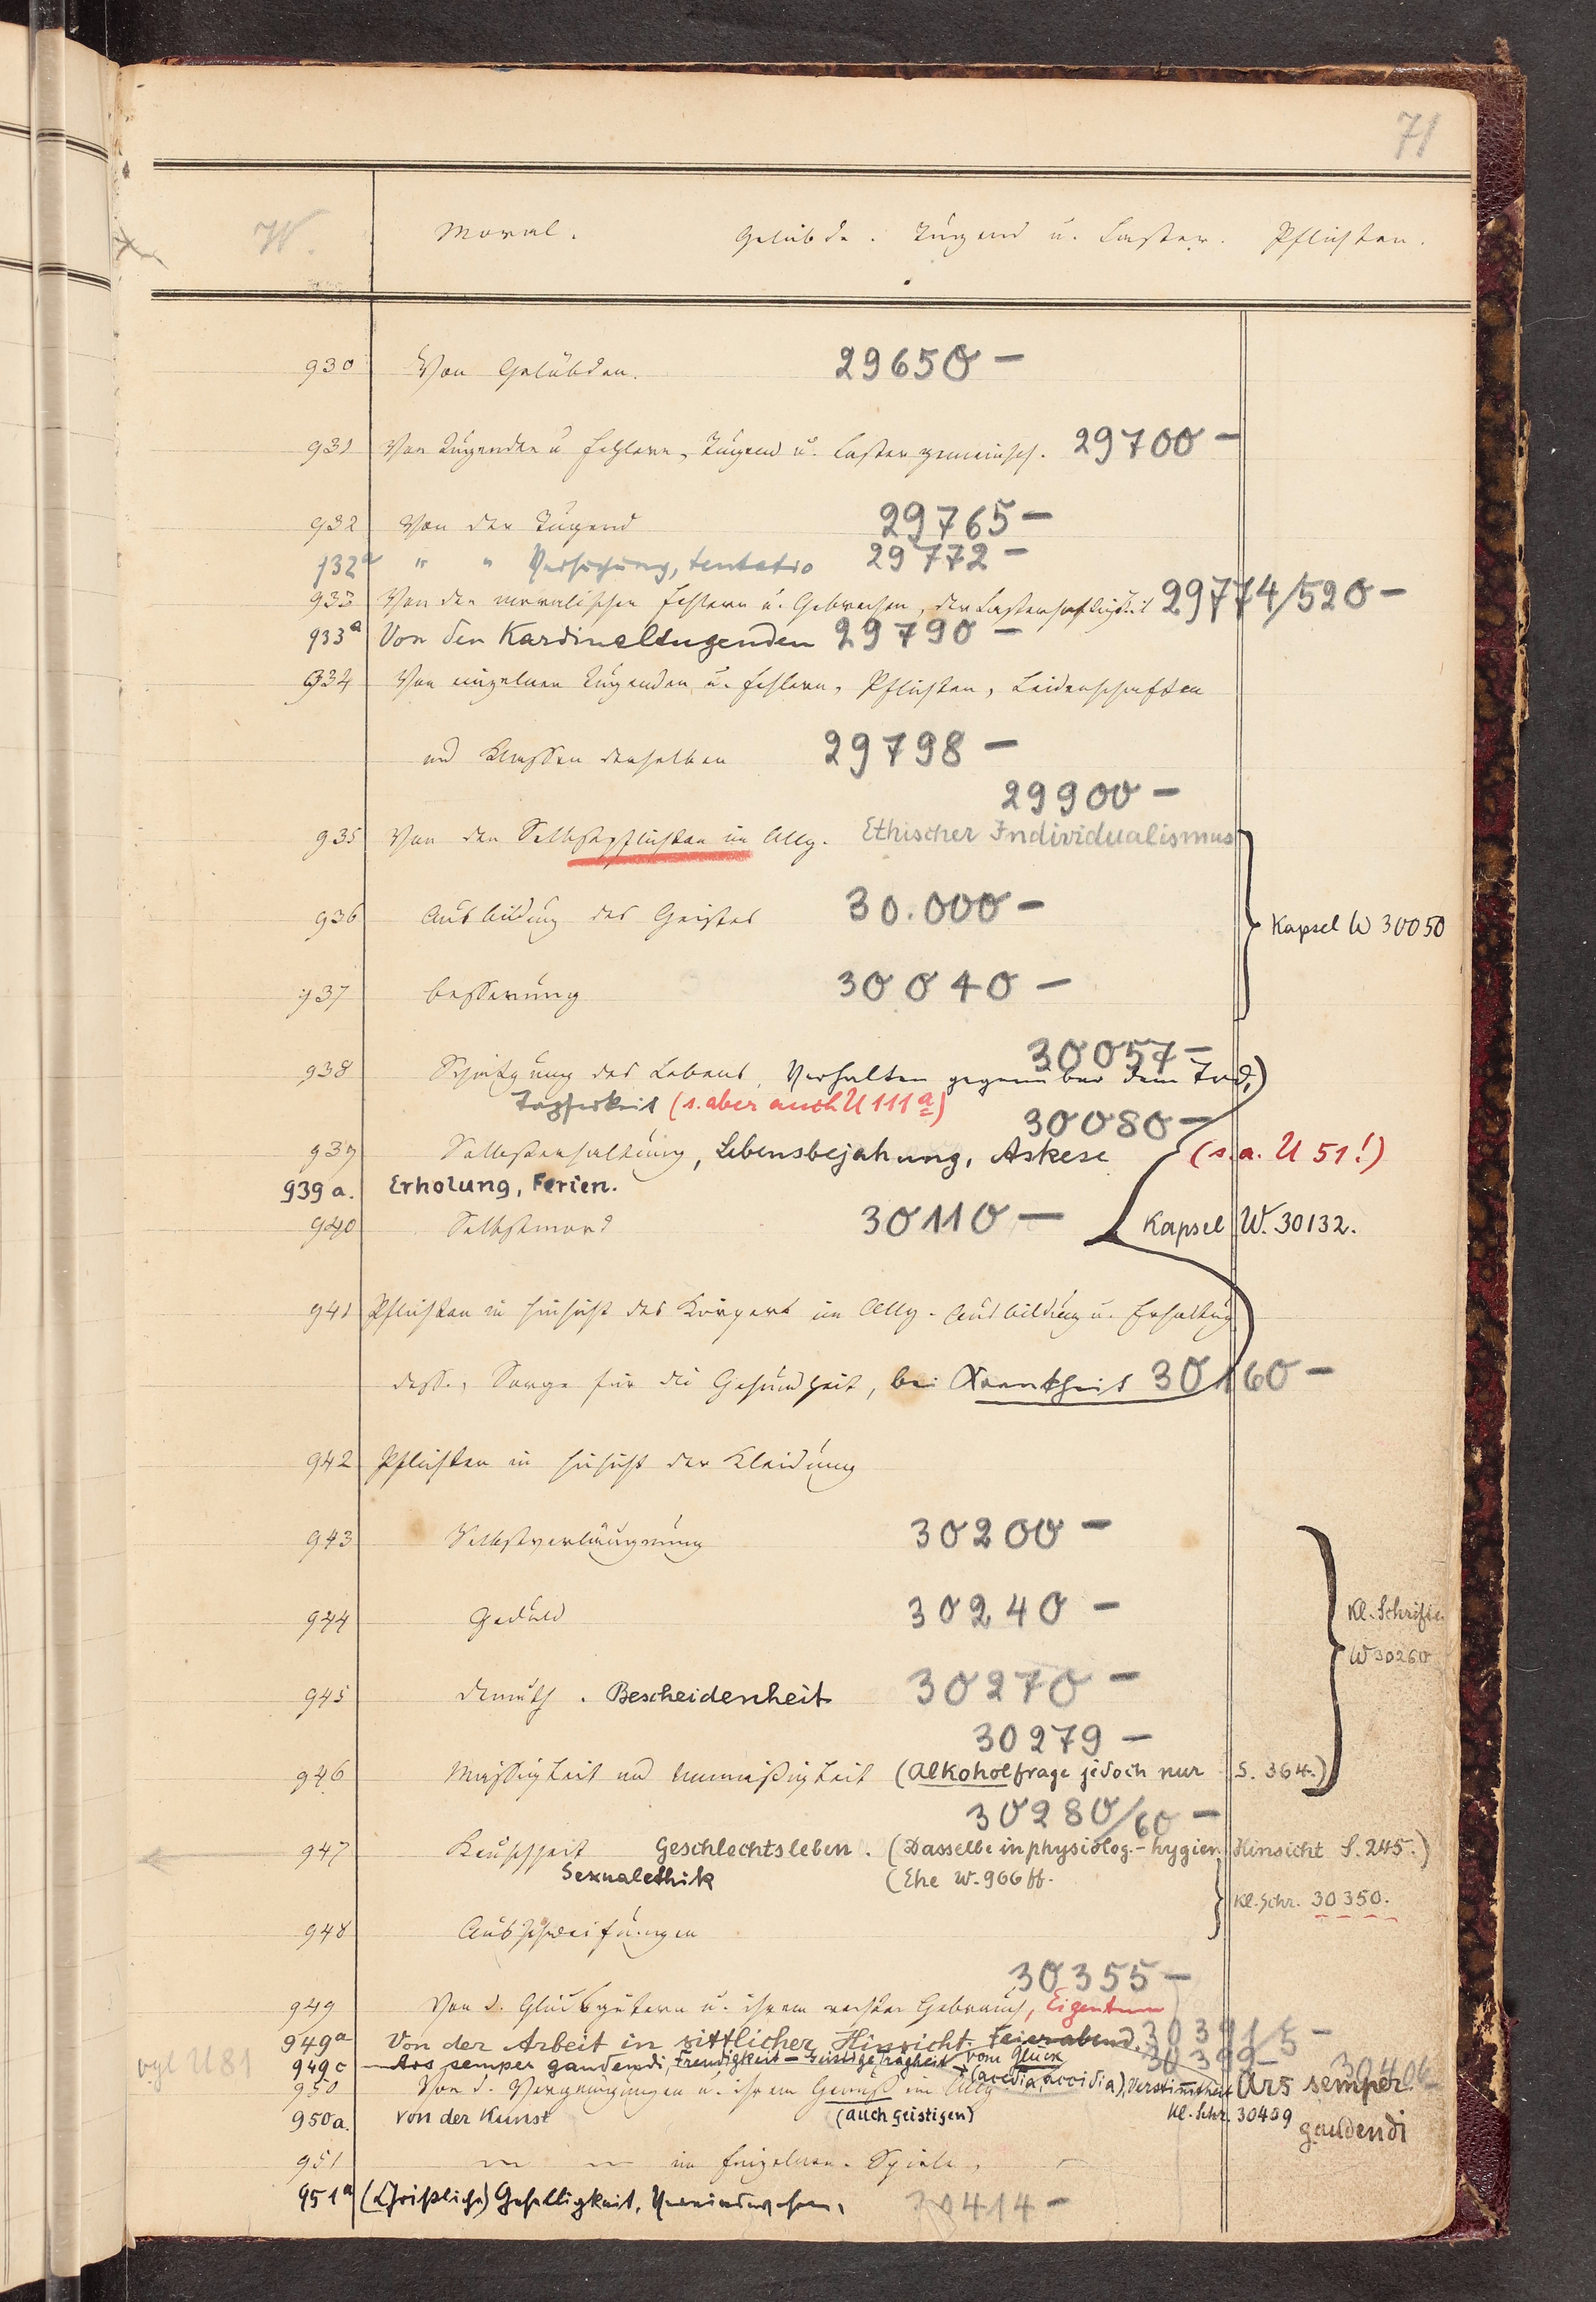 71
W. Moral. Gelübde. Tugend u. Laster. Pflichten.
930 Von Gelübden. 29650 —
931 Von Tugenden u Fehlern, Tugend u. Laster gemeinsch. 29700 —
932 Von der Tugend 29765 —
932a " " Versuchung, tentatio 29772 —
933 Von den moralischen Fehlern u. Gebrechen, der Lasterhaftigkeit 29774/520 —
933a Von den Kardinaltugenden 29790 —
934 Von einzelnen Tugenden u. Fehlern, Pflichten, Leidenschaften
und Klassen derselben 29798 —
29900 —
935 Von den Selbstpflichten im Allg. Ethischer Individualismus
936 Ausbildung des Geistes 30.000 —
Kapsel W 30050
937 Besserung 30040 —
30057 —
938 Schätzung des Lebens, Verhalten gegenüber dem Tod,)
Tapferkeit (s. aber auch U 111a)
30080 —
939 Selbsterhaltung, Lebensbejahung, Askese (s. a. U 51!)
939a. Erholung, Ferien.
940 Selbstmord 30110 — Kapsel W. 30132.
941 Pflichten in Hinsicht des Körpers im Allg. Ausbildung u. Erhaltung
dess., Sorge für die Gesundheit, bei Krankheit 30160 —
942 Pflichten in Hinsicht der Kleidung
943 Selbstverläugnung 30200 —
944 Geduld 30240 —
Kl. Schriften
W 30260
945 Demuth. Bescheidenheit 30270 —
30279 —
946 Mässigkeit und Unmäßigkeit (Alkoholfrage jedoch nur S. 364.)
30280/60 —
947 Keuschheit Geschlechtsleben. (Dasselbe in physiolog.-hygien. Hinsicht S. 245.)
Sexualethik (Ehe W. 966 ff.
Kl. Schr. 30350.
948 Ausschweifungen
30355 —
949 Von d. Glücksgütern u. ihrem rechten Gebrauch, Eigentum
949a Von der Arbeit in sittlicher Hinsicht. Feierabend. 30391/5 —
vgl U 81 949c Ars semper gaudendi, Freudigkeit — Geistige Trägheit vom Glück 30399 —
(acedia, accidia), Verstimmtheit Ars semper gaudendi 30406 —
950 Von d. Vergnügungen u. ihrem Genuß im Allg.
950a. von der Kunst (auch geistigen) Kl. Schr. 30409
951 — — im Einzelnen. Spiele,
951a (Christliche) Geselligkeit, Vereinswesen, 30414 —